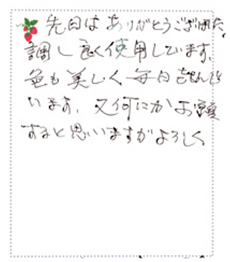 先日はありがとうございました。
調し良く使用しています。
色も美しく毎日たのしんで
います。又何にかお世話
すると思いますがよろしく